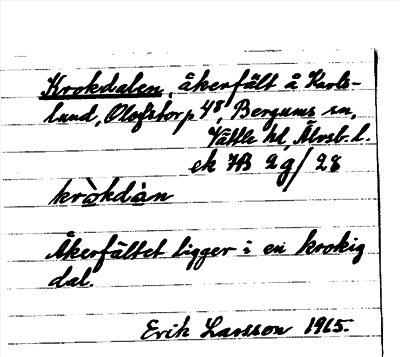 Krokdalen, åkerfält å Karls-
lund, Olofstorp 48, Bergums sn,
Vättle hd, Älvsb. l.
ek 7B 2g/28
kròkdàn
Åkerfältet ligger i en krokig
dal.
Erik Larsson 1965.